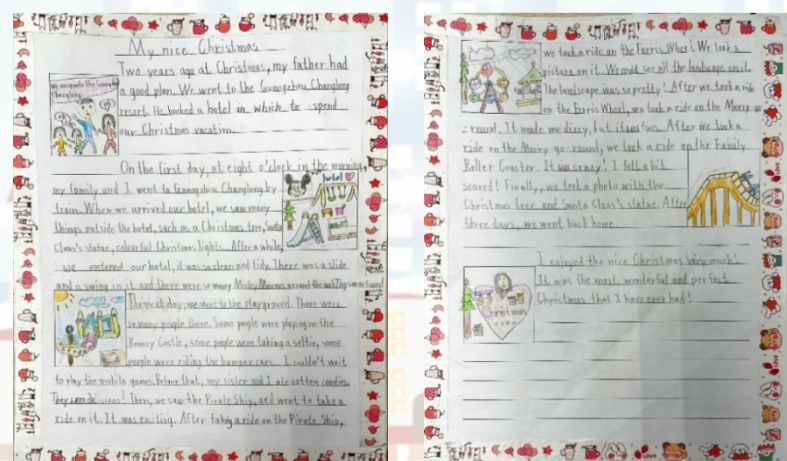 My nice Christmas
Two years ago at Christmas, my father had
a good plan. We went to the Guangzhou Changlong
resort. He booked a hotel in which to spend
our Christmas vacation.
On the first day, at eight o'clock in the morning,
my family and I went to Guangzhou Changlong by
train. When we arrived our hotel, we saw many
things outside the hotel, such as a Christmas tree, Santa
Claus's statue, colourful Christmas lights. After a while,
we entered our hotel, it was so clean and tidy. There was a slide
and a swing in it and there were so many Micky Mouses around the wall.
hotel
The next day, we went to the playground. There were
so many people there. Some people were playing on the
Bouncy Castle, some people were taking a selfie, some
people were riding the bumper cars. I couldn't wait
to play the mobile games. Before that, my sister and I ate cotton candies.
They were delicious! Then, we saw the Pirate Ship, and went to take a
ride on it. It was exciting. After taking a ride on the Pirate Ship,
we took a ride on the Ferris Wheel. We took a
picture on it. We could see all the landscape on it.
The landscape was so pretty! After we took a ride
on the Ferris Wheel, we took a ride on the Merry-go
-round. It made me dizzy, but it was fun. After we took a
ride on the Merry-go-round, we took a ride on the Family
Roller Coaster. It was crazy! I felt a bit
scared! Finally, we took a photo with the
Christmas tree and Santa Claus's statue. After
three days, we went back home.
I enjoyed the nice Christmas very much!
It was the most wonderful and perfect
Christmas that I have ever had!
Christmas